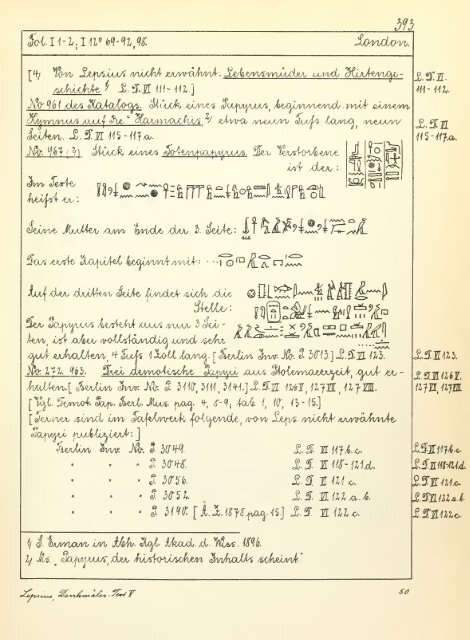 393
Fol. I 1-2, I 12° 69-92, 98.
London.
[4) Von Lepsius nicht erwähnt: Lebensmüder und Hirtenge-
L. D. VI
schichte 1) L. D. VI 111-112.]
111-112.
No 961 des Katalogs. Stück eines Papyrus, beginnend mit einem
Hymnus auf Re-Harmachis, 2) etwa neun Fuss lang, neun
L. D. VI
Seiten. L. D. VI 115-117a.
115-117a.
No. 967: Stück eines Totenpapyrus. Der Verstorbene
ist der:
Im Texte
heißt er:
Seine Mutter am Ende der 3. Seite:
Das erste Kapitel beginnt mit: ...
Auf der dritten Seite findet sich die
Stelle:
Der Papyrus besteht aus nur 3 Sei-
ten, ist aber vollständig und sehr
gut erhalten, 4 Fuss 1 Zoll lang. [Berlin Inv. No. P. 3013] L. D. VI 123.
L. D. VI 123.
No 272. 963. Drei demotische Papyri aus Ptolemaerzeit, gut er-
L. D. VI 126 V.
halten. [Berlin Inv. No. P. 3110, 3111, 3141.] L. D. VI 126 V, 127 VI, 127 VII.
127 VI, 127 VII.
[Vgl. Demot. Pap. Berl. Mus. pag. 4, 8-9; tab. 1, 10, 13-15.]
[Ferner sind im Tafelwerk folgende, von Leps. nicht erwähnte
Papyri publiziert:]
Berlin Inv. No. P. 3049. L. D. VI 117 b. c.
L. D. VI 117 b. c.
" " " P. 3048. L. D. VI 118-121 d.
L. D. VI 118-121 d.
" " " P. 3056. L. D. VI 121 c.
L. D. VI 121 c.
" " " P. 3052. L. D. VI 122 a. b.
L. D. VI 122 a. b.
" " " P. 3140. [Ä. Z. 1878 pag. 15] L. D. VI 122 c.
L. D. VI 122 c.
1) S. Erman in Abh. Kgl. Akad. d. Wiss. 1896.
2) Ms. "Papyrus, der historischen Inhalts scheint"
Lepsius, Denkmäler. Text V
50